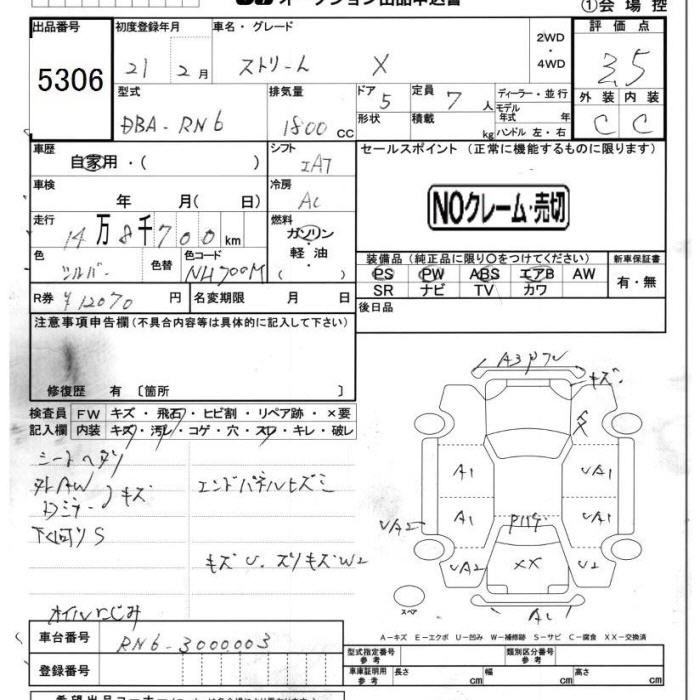 オークション出品申込書
①会場控
出品番号 5306
初度登録年月 21 2月
車名・グレード ストリーム X
2WD・4WD
評価点 3.5
型式 DBA-RN6
排気量 1800 cc
ドア 5
形状
定員 7人
積載 kg
ディーラー・並行
モデル年式 年
ハンドル 左・右
外装 C
内装 C
車歴 自家用・( )
シフト IAT
セールスポイント (正常に機能するものに限ります)
NOクレーム・売切
車検 年 月( 日)
冷房 AC
走行 14万8千700km
燃料 ガソリン・軽油 ( )
色 シルバー
色替
色コード NH700M
装備品(純正品に限り○をつけてください)
PS PW ABS エアB AW
SR ナビ TV カワ
新車保証書 有・無
R券 ¥12070 円
名変期限 月 日
後日品
注意事項申告欄(不具合内容等は具体的に記入して下さい)
修復歴 有 〔箇所 〕
検査員記入欄
FW キズ・飛石・ヒビ割・リペア跡・×要
内装 キズ・汚レ・コゲ・穴・スレ・キレ・破レ
シートヘタリ
キズ
エンドパネルヒズミ
下回りS
キズU、スリキズW2
オイルにじみ
キズ
A1
UA1
A1
UA1
UA2
UA2
XX
U2
スペア
A1
A-キズ E-エクボ U-凹み W-補修跡 S-サビ C-腐食 XX-交換済
車台番号 RN6-3000003
登録番号
型式指定番号 参考
類別区分番号 参考
車庫証明用 参考 長さ cm 幅 cm 高さ cm